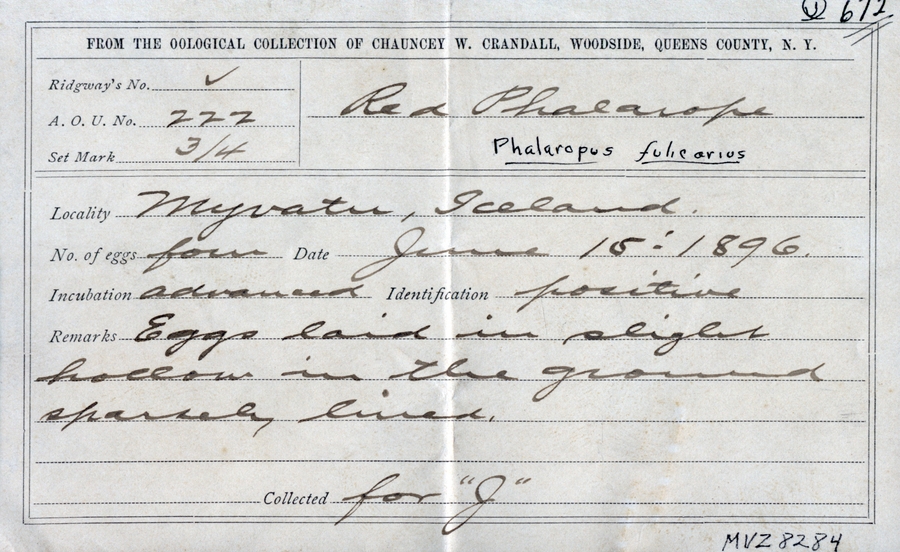 ① 672
FROM THE OOLOGICAL COLLECTION OF CHAUNCEY W. CRANDALL, WOODSIDE, QUEENS COUNTY, N. Y.
Ridgway's No. ✓
A. O. U. No. 222
Set Mark 3/4
Red Phalarope
Phalaropus fulicarius
Locality Myvatn, Iceland.
No. of eggs four Date June 15: 1896.
Incubation advanced Identification positive
Remarks Eggs laid in slight
hollow in the ground
sparsely lined.
Collected for "J"
MVZ 8284